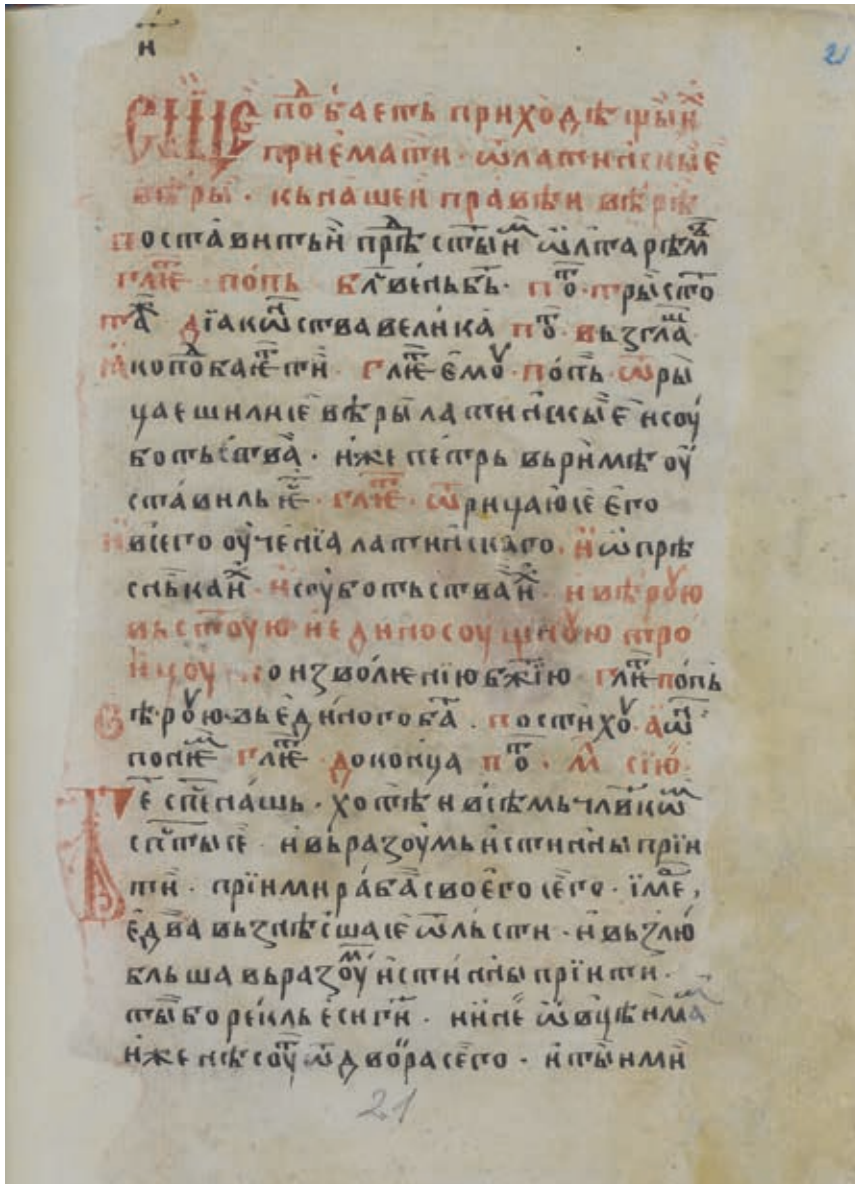 н҃
21
Сице подⷪ҇баеть приходѣщыиⷯ
приемати · ѿ латинскые
вѣры · кь нашеи правѣи вѣрѣ
поставить и прⷣѣ стыиⷨ ѡлтаремⷨ
глⷮе попь блⷭ҇вень бь · поⷮ · трысто
таⷤ дїакѡнства велика поⷮ · вьзглаⷲ
ꙗко подⷪ҇баеть ти · глⷮе емоу · попь · ѿры
цаеши ли се вѣры латинскые и соу
ботьства · иже петрь вь римѣ оу
ставиль ѥⷭ · глⷮе · ѿрицаю се его
и всего оученїа латинскаго · и ѡпрѣ
снькаⷯ · и суботьстваⷯ · и вѣроую
вь стоую и единосоущноую тро
ицоу · произволѥнїю бжїю глⷮе попь
вѣроую вь единого ба · по стихоу · аѡⷩ
глⷮе до конца поⷮ · м сїю
Бе спсе нашь · хоте и всѣмь члвкѡⷨ
спсты се · и вь разоумь истинны прїи
ти · прїими раба своего сего · їмеⷬ
едва вьзнѣсша се ѿ льсти · и вьзлю
бльша вь разоуⷨ истинны прїити ·
ты бо рекль еси ги · и ине ѡвце имаⷨ
иже несоуⷮ ѿ двора сего · и ты ими
21